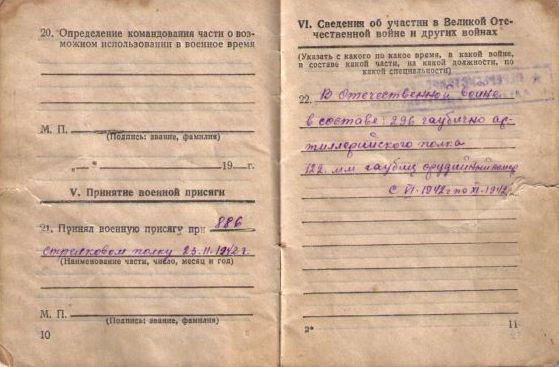 20. Определение командования части о воз-
можном использовании в военное время
М. П.
(Подпись: звание, фамилия)
„ — “ 19 — г.
V. Принятие военной присяги
21. Принял военную присягу при 886
стрелковом полку 23.II.1942 г.
(Наименование части, число, месяц и год)
М. П.
(Подпись: звание, фамилия)
10
VI. Сведения об участии в Великой Оте-
чественной войне и других войнах
(Указать с какого по какое время, в какой войне,
в составе какой части, на какой должности, по
какой специальности)
22. В Отечественной войне
в составе: 296 гаубично ар-
тиллерийского полка
122 мм гаубиц орудийный номер
с 1942 г по XI. 1942
2*
11